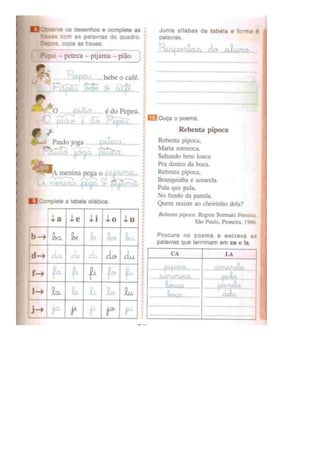 Observe os desenhos e complete as
frases com as palavras do quadro.
Depois, copie as frases:
Papai – peteca – pijama – pião
Papai bebe o café.
Papai bebe o café.
O pião é do Pepeu.
O pião é do Pepeu.
Paulo joga peteca
Paulo joga peteca.
A menina pega o pijama.
A menina pega o pijama.
Complete a tabela silábica:
↓a ↓e ↓i ↓o ↓u
b→ ba be bi bo bu
d→ da de di do du
f→ fa fe fi fo fu
l→ la le li lo lu
j→ ja je ji jo ju
Junte sílabas da tabela e forme
palavras.
Respostas do aluno.
10 Ouça o poema:
Rebenta pipoca
Rebenta pipoca,
Maria sororoca.
Saltando bem louca
Pra dentro da boca.
Rebenta pipoca,
Branquinha e amarela.
Pula que pula,
No fundo da panela.
Quem resiste ao cheirinho dela?
Rebenta pipoca. Regina Sormani Ferreira.
São Paulo, Pioneira, 1996.
Procure no poema e escreva as
palavras que terminam em ca e la.
CA LA
pipoca amarela
sororoca pula
louca panela
boca dela